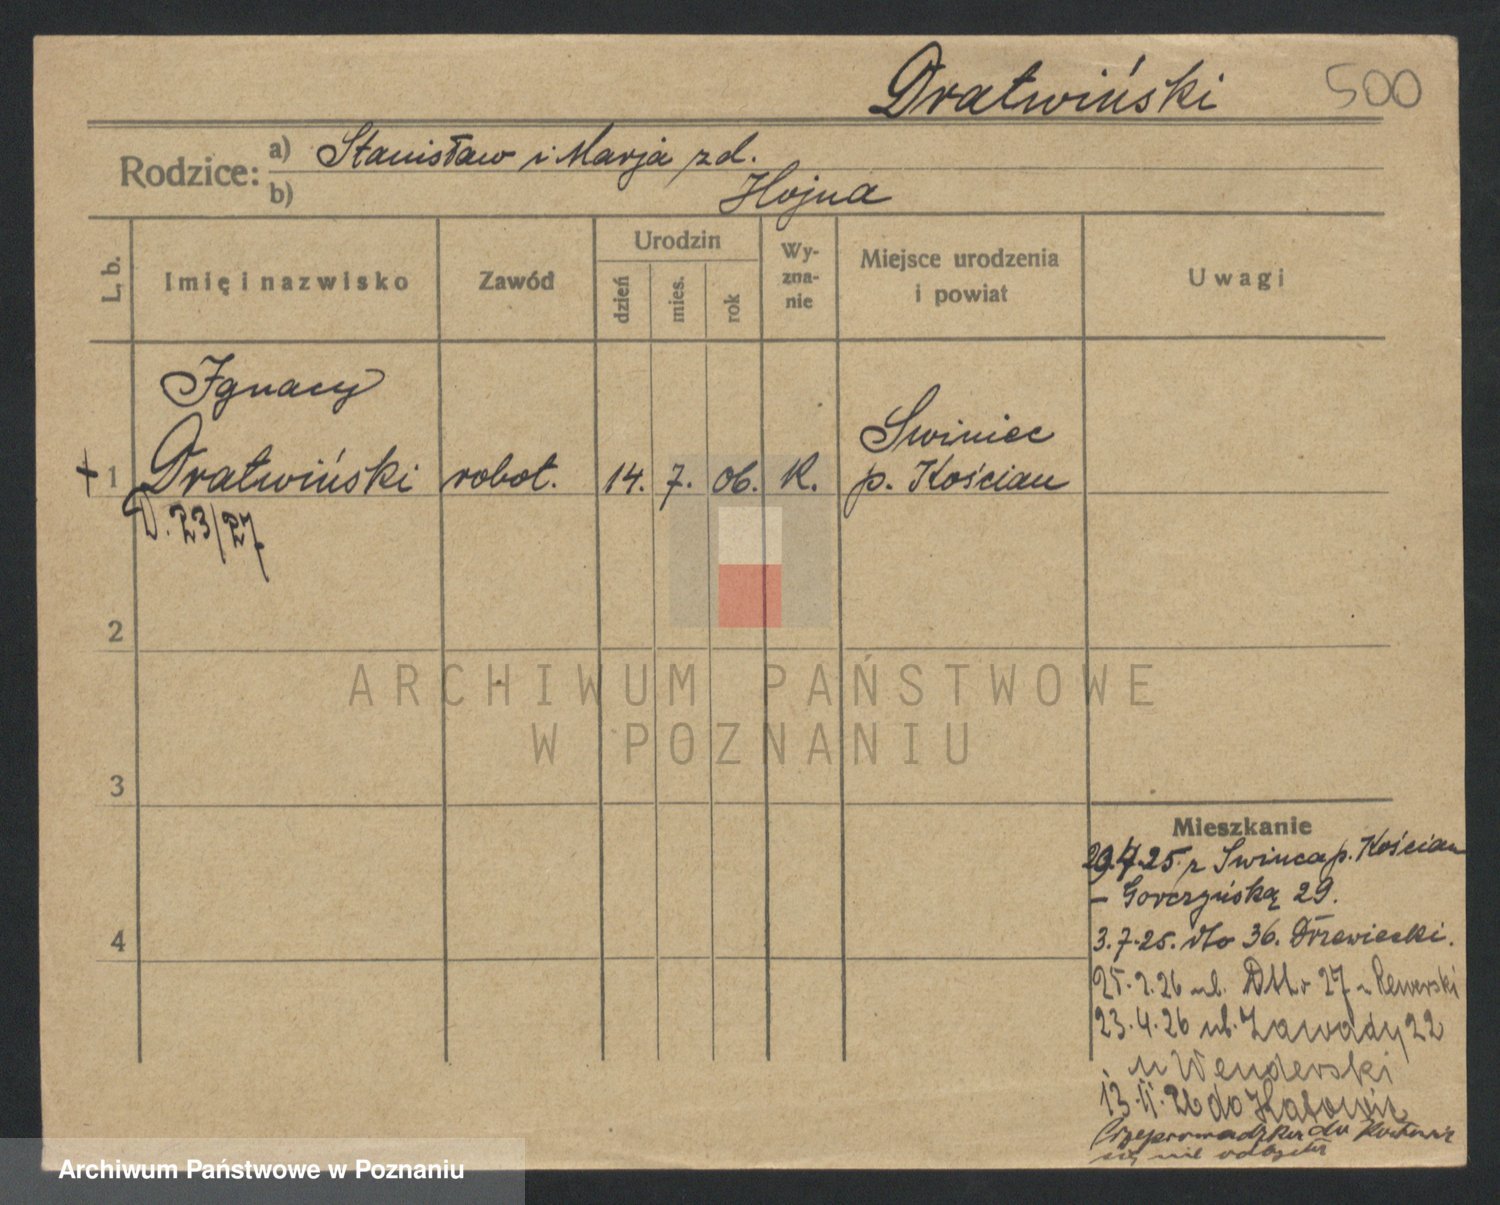 Dratwiński 500
Rodzice: a) Stanisław i Marja zd.
b) Hojna
L. b. Imię i nazwisko Zawód Urodzin dzień mies. rok Wy-zna-nie Miejsce urodzenia i powiat Uwagi
Ignacy
+ 1 Dratwiński robot. 14. 7. 06. K. Swiniec
p. Kościan
D. 23/27
2
3
4
Mieszkanie
29.7.25. z Swinca p. Kościan
– Gorczyńską 29.
3.7.25. 36. Drzewiecki.
26 ul. 27 Rewerski
23.4.26 ul. Zawady 22
u Wenderski
13.II.26 do Katowic
Przeprowadzka do Katowic
się nie odbyła
ARCHIWUM PAŃSTWOWE
W POZNANIU
Archiwum Państwowe w Poznaniu